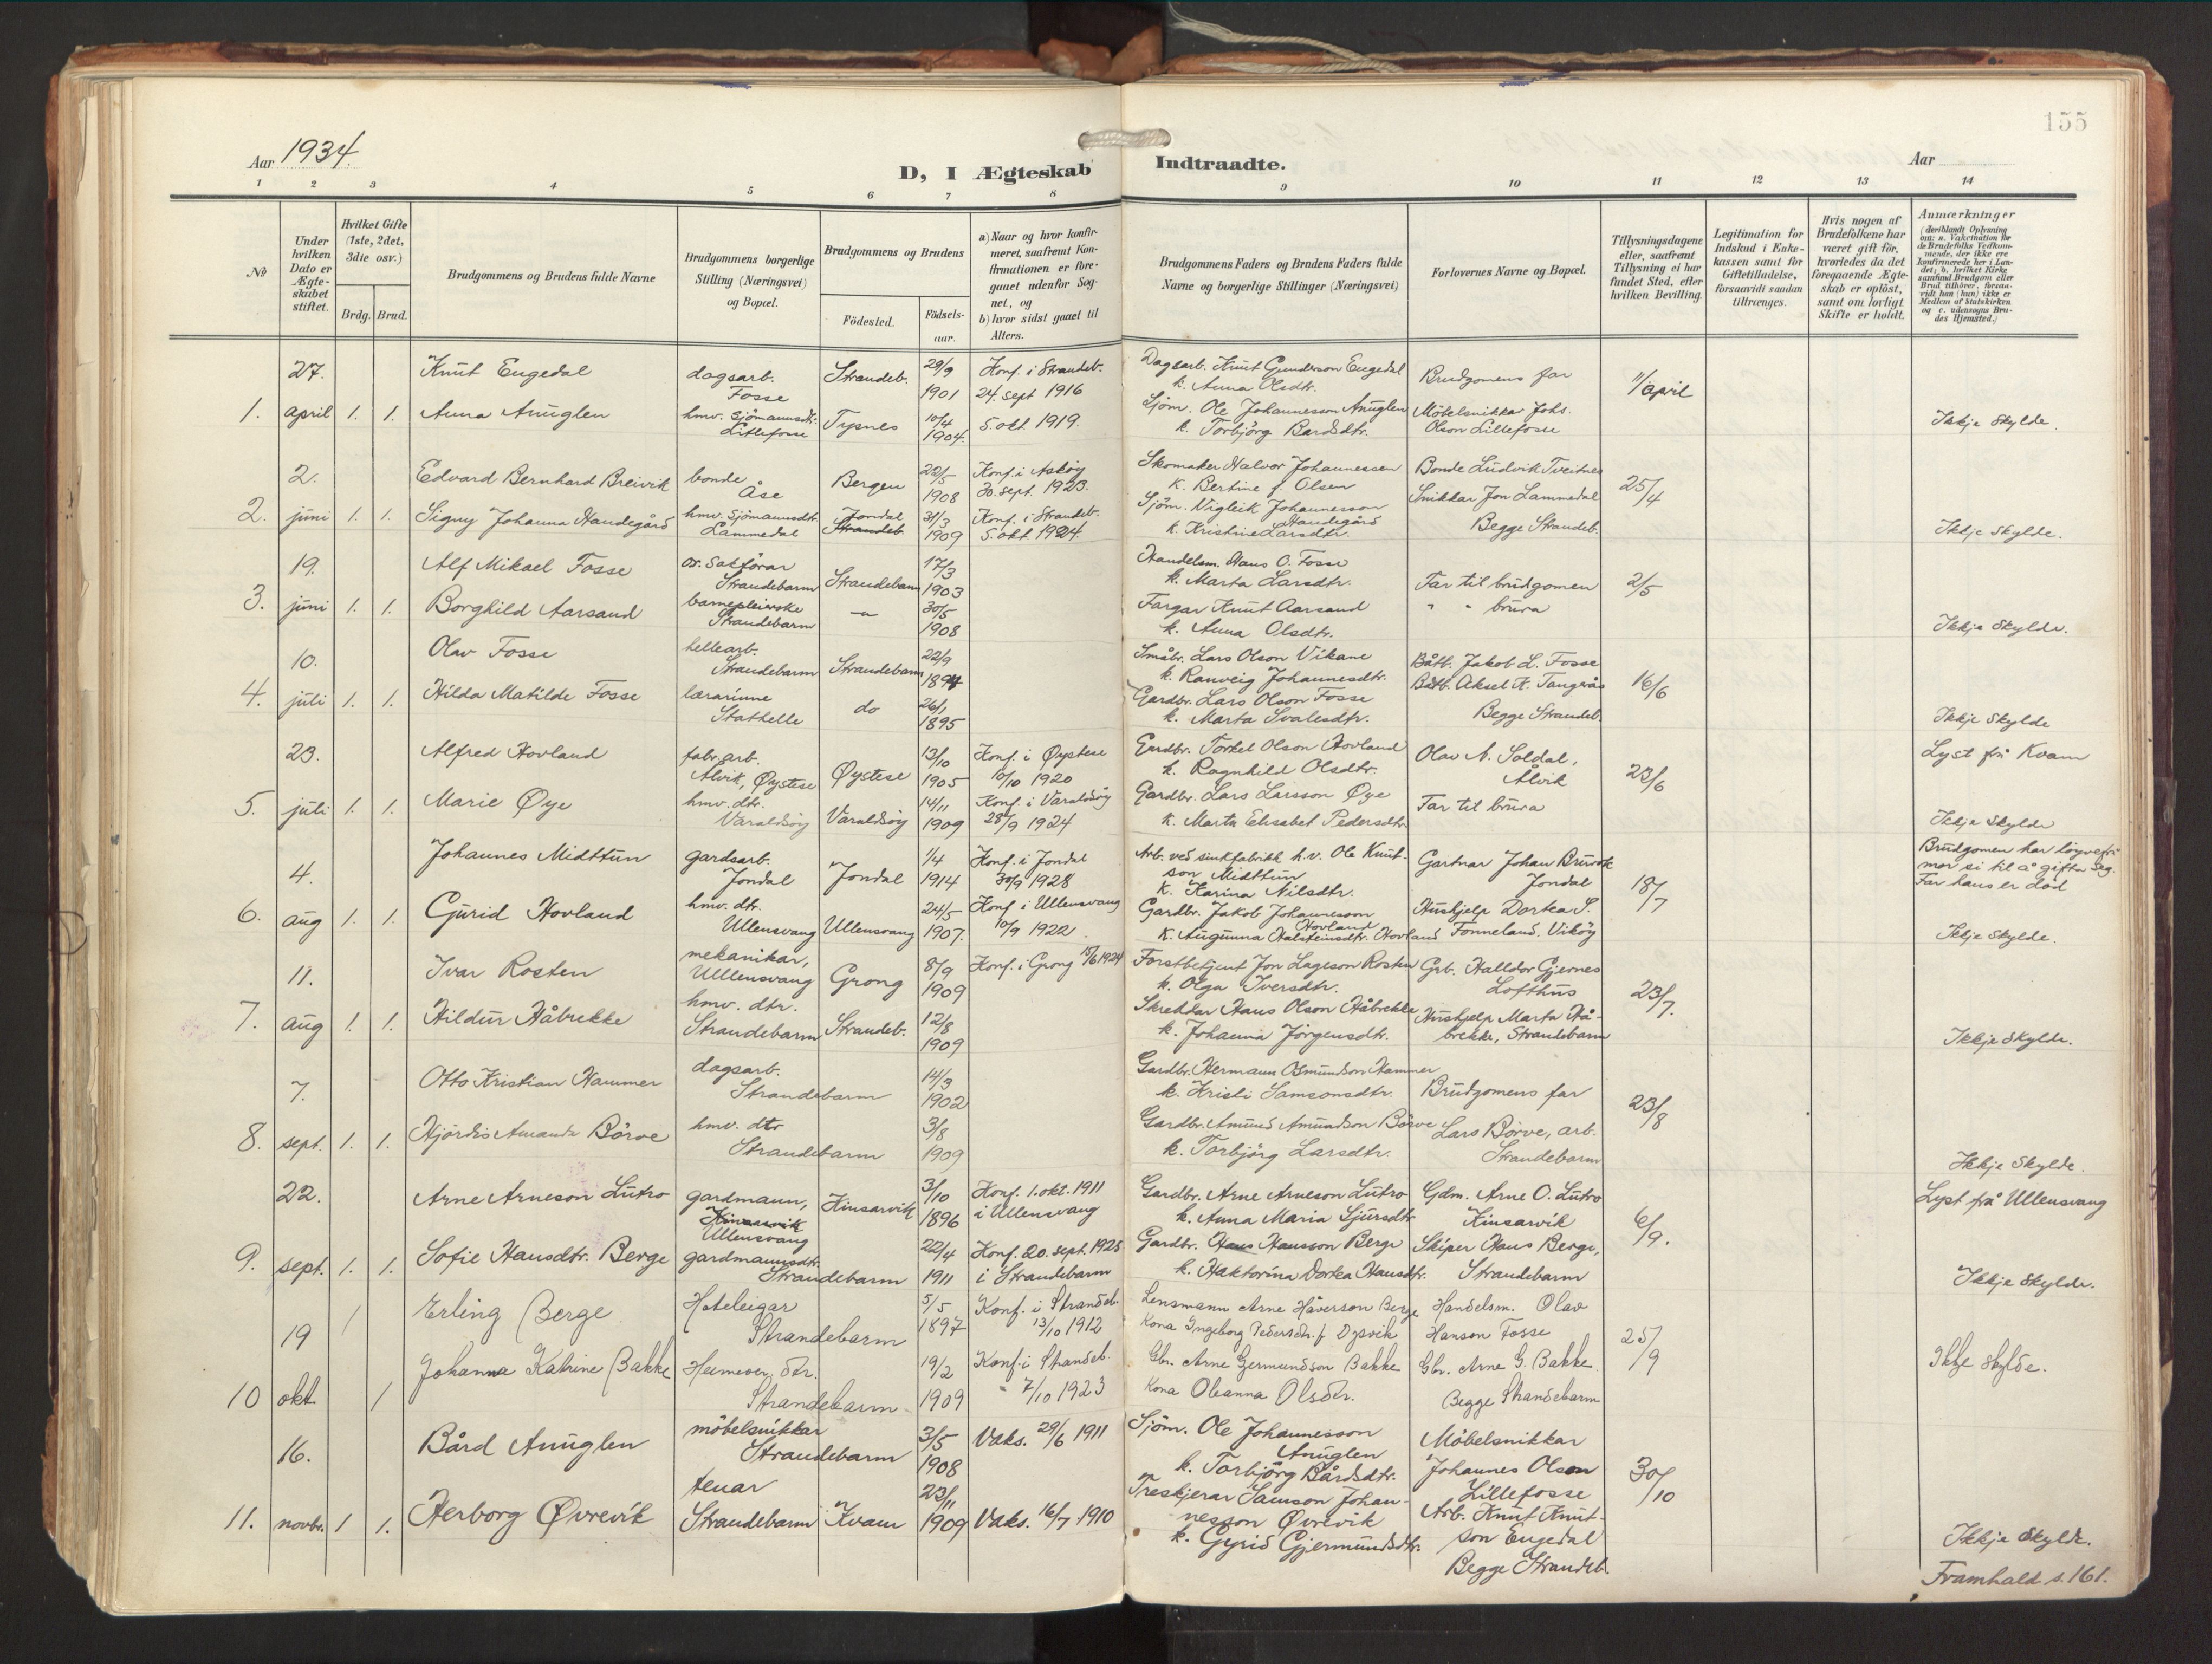 155
Aar 1934.
D, I Ægteskab Indtraadte.
Aar
1 2 3 4 5 6 7 8 9 10 11 12 13 14
No
Under hvilken Dato er Ægteskabet stiftet.
Hvilket Gifte (1ste, 2det, 3die osv.)
Brdg. Brud.
Brudgommens og Brudens fulde Navne
Brudgommens borgerlige Stilling (Næringsvei) og Bopæl.
Brudgommens og Brudens
Födested.
Födselsaar.
a) Naar og hvor konfirmeret, saafremt Konfirmationen er foregaaet udenfor Sognet, og
b) hvor sidst gaaet til Alters.
Brudgommens Faders og Brudens Faders fulde Navne og borgerlige Stillinger (Næringsvei)
Forlovernes Navne og Bopæl.
Tillysningsdagene eller, saafremt Tillysning ei har fundet Sted, efter hvilken Bevilling.
Legitimation for Indskud i Enkekassen samt for Giftetilladelse, forsaavidt saadan tiltrænges.
Hvis nogen af Brudefolkene har været gift för, hvorledes da det foregaaende Ægteskab er oplöst, samt om lovligt Skifte er holdt.
Anmærkninger (deriblandt Oplysning om: a. Vakcination for de Brudefolks Vedkommende, der ikke ere konfirmerede her i Landet; b. hvilket Kirkesamfund Brudgom eller Brud tilhører, forsaavidt han (hun) ikke er Medlem af Statskirken og c. udensogns Brudes Hjemsted.)
27. Knut Engedal dagsarb. Fosse Strandeb. 29/9 1901 Konf. i Strandeb. 24. sept 1916 Dagsarb. Knut Gunderson Engedal k. Anna Olsdtr. Brudgomens far 11/april
1. april 1. 1. Anna Anuglen hmv. sjömannsdtr. Lillefosse Tysnes 10/4 1904. 5. okt. 1919. Sjöm. Ole Johannesson Anuglen k. Torbjörg Bardsdtr. Möbelsnikkar Johs. Olson Lillefosse Ikkje skylde.
2. Edvard Bernhard Breivik bonde Åse Bergen 22/5 1908 Konf. i Askøy 30. sept. 1923. Skomaker Halvor Johannessen k. Bertine f. Olsen Bonde Ludvik Tveitnes 25/4
2. juni 1. 1. Signy Johanna Haudegård hmv. sjömannsdtr. Lammedal Jondal Strandeb. 31/3 1909 Konf. i Strandeb. 5. okt 1924. Sjöm. Vigleik Johannesson Haudegård k. Kristine Larsdtr. Snikkar Jon Lammedal Begge Strandeb. Ikkje skylde.
19. Alf Mikael Fosse or. sakförar Strandebarm Strandebarm 17/3 1903 Handelsm. Hans O. Fosse k. Marta Larsdtr. Far til brudgomen 2/5
3. juni 1. 1. Borghild Aarsand barnepleierske Strandebarm — " — 30/5 1908 Fargar Knut Aarsand k. Anna Olsdtr. " " brura Ikkje skylde.
10. Olav Fosse hellearb. Strandebarm Strandebarm 22/9 1894 Småbr. Lars Olson Vikane k. Ranveig Johannesdtr. Båtb. Jakob L. Fosse 16/6
4. juli 1. 1. Hilda Matilde Fosse lærarinne Stathelle do 26/1 1895 Gardbr. Lars Olson Fosse k. Marta Svalesdtr. Båtb. Aksel H. Tangerås Begge Strandeb. Ikkje skylde
23. Alfred Hovland fabr. arb. Alvik, Øystese Øystese 13/10 1905 Konf. i Øystese 10/10 1920 Gardbr. Torkel Olson Hovland k. Ragnhild Olsdtr. Olav N. Soldal, Ålvik 23/6 Lyst frå Kvam
5. juli 1. 1. Marie Øye hmv. dtr. Varaldsöy Varaldsöy 14/11 1909 Konf. i Varaldsöy 28/9 1924 Gardbr. Lars Larsson Øye k. Marta Elisabet Pedersdtr. Far til brura Ikkje skylde
4. Johannes Midttun gardsarb. Jondal Jondal 1/4 1914 Konf. i Jondal 30/9 1928 Arb. ved sinkfabrikk h.v. Ole Knutson Midttun k. Karina Nilsdtr. Gartnar Johan Bruvik Jondal 18/7 Brudgomen har löyve frå mor si til å gifta seg. Far hans er död
6. aug 1. 1. Gurid Hovland hmv. dtr. Ullensvang Ullensvang 24/5 1907. Konf. i Ullensvang 10/9 1922. Gardbr. Jakob Johannesson Hovland k. Augunna Halsteinsdtr. Hovland Hushjelp Dortea S. Fonneland, Viköy Ikkje skylde.
11. Ivar Rosten mekanikar, Ullensvang Grong 8/9 1909 Konf. i Grong 15/6 1924 Forstbetjent Jon Lageson Rosten k. Olga Iversdtr. Grb. Halldor Gjernes Lofthus 23/7.
7. aug 1. 1. Hildur Håbrekke hmv. dtr. Strandebarm Strandeb. 12/8 1909 Skreddar Hans Olson Håbrekke k. Johanna Jörgensdtr. Hushjelp Marta Håbrekke, Strandebarm Ikkje skylde.
7. Otto Kristian Hammer dagsarb. Strandebarm 14/3 1902 Gardbr. Hermann Osmundson Hammer k. Kristi Samsonsdtr. Brudgomens far 23/8
8. sept. 1. 1. Hjördis Amanda Börve hmv. dtr Strandebarm 3/8 1909 Gardbr. Amund Amundson Börve k. Torbjörg Larsdtr. Lars Börve, arb. Strandebarm Ikkje skylde.
22. Arne Arneson Lutro gardmann, Kinsarvik Ullensvang Kinsarvik 3/10 1896 Konf. 1. okt. 1911 i Ullensvang Gardbr. Arne Arneson Lutro k. Anna Maria Sjursdtr Gdm. Arne O. Lutro Kinsarvik 6/9. Lyst frå Ullensvang
9. sept. 1. 1. Sofie Hansdtr. Berge gardmannsdtr. Strandebarm 22/4 1911 Konf. 20. sept. 1925 i Strandebarm Gardbr. Hans Hansson Berge k. Haktorina Dortea Hansdtr. Skiper Hans Berge, Strandebarm Ikkje skylde.
19 1 Erling Berge Hoteleigar Strandebarm 5/5 1897 Konf. i Strandeb. 13/10 1912 Lensmann Arne Håverson Berge Kona Ingeborg Pedersdtr. f. Dysvik Handelsm. Olav Hanson Fosse 25/9
10 okt. 1 Johanna Katrine Bakke Heimever. dtr. Strandebarm 19/2 1909 Konf. i Strandeb. " 7/10 1923 Gbr. Arne Germundson Bakke Kona Oleanna Olsdtr. Gbr. Arne G. Bakke Begge Strandebarm Ikkje skylde.
16. Bård Anuglen möbelsnikkar Strandebarm 3/5 1908 Vaks. 29/6 1911 Sjöm. Ole Johannesson Anuglen k. Torbjörg Bårdsdtr. Möbelsnikkar Johannes Olson Lillefosse 30/10
11. novbr. 1 1. Herborg Øvrevik tenar Strandebarm Kvam 23/11 1909 Vaks. 16/7 1910 Treskjerar Samson Johannesson Øvrevik k. Gyrid Gjermundsdtr. Arb. Knut Knutson Engedal Begge Strandeb. Ikkje skylde.
Framhald s. 161.